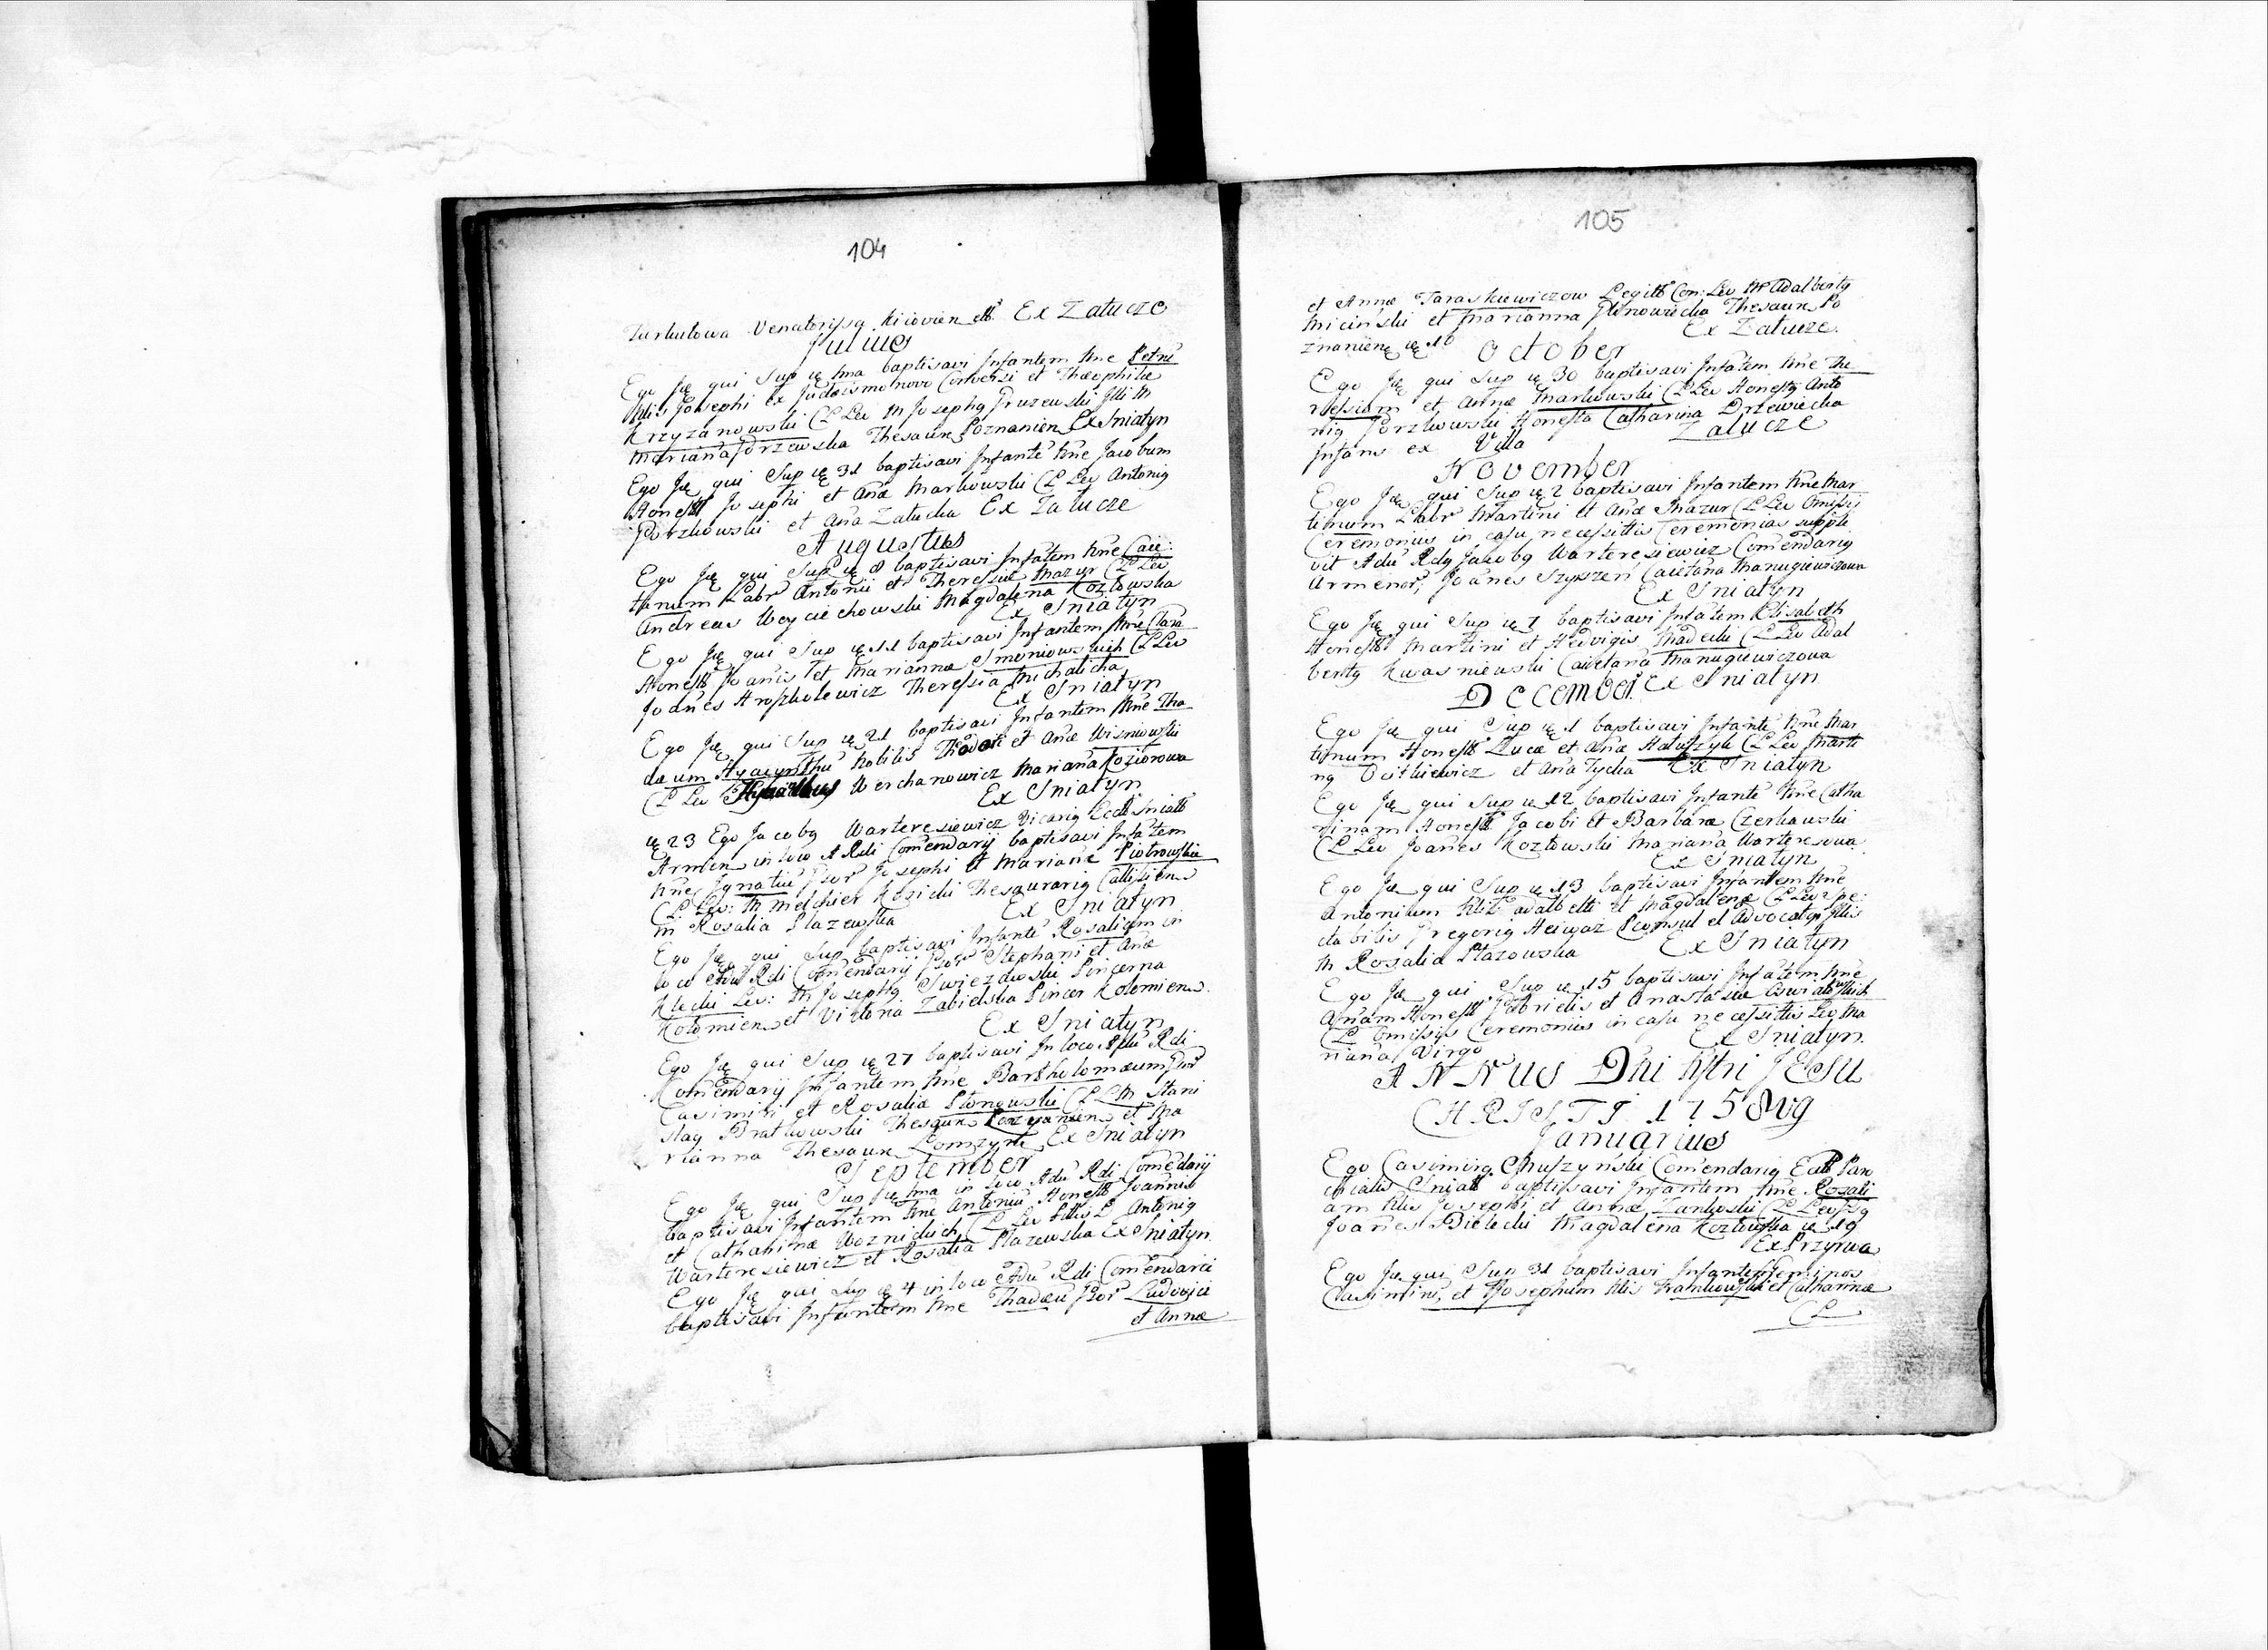 104
Turkułowa Venatorissa Kijovien etc Ex Załucze
Julius
Ego Idę qui Sup ię 1ma baptisavi Infantem nne Petrū
filis Josephi ex Judaismo novo Conversi et Theophilæ
Krzyzanowski LLLev M Josephg Gruzewski Illi M
Mariana Gorzewska Thesaur Poznanien Ex Sniatyn
Ego Ię qui Sup ię 31 baptisavi Infantē nne Jacobum
Honest Josephi et Anæ Markowski LLLev Antonig
Gorzkowski et Ana Załucka Ex Załucze
Augustus
Ego Ię qui Sup ię 8 baptisavi Infātem nne Caie:
tanum Labr Antonii et Theressiæ Mazur LLLev
Andreas Woyciechowski Magdalena Kozłowska
Ex Sniatyn
Ego Ię qui Sup ię 11 baptisavi Infantem nne Clara
Honest Joanis et Mariannæ Smoniowskich LLLev
Joanes Hroszkolewicz Theressia Michalicha
Ex Sniatyn
Ego Ię qui Sup ię 21 baptisavi Infantem nne Tha
dæum Hyacynthū Nobilis Thadæi et Anæ Wisniowski
LLLev Werhanowicz Mariana Koziorowa
Ex Sniatyn
ię 23 Ego Jacobg Warteresiewicz Vicarig Eccl Sniatt
Armen in loco A Rdi Comendarij baptisavi Infātem
nne Ignatiū Gsor Josephi et Marianæ Piotrowskie
LLLev: M Melchier Kosicki Thesaurarig
M Rosalia Płazewska Ex Sniatyn
Ego Ię qui Sup baptisavi Infantē Rosaliam in
loco Adu Rdi Comendarij Gsor Stephani et Anæ
Klecki Lev: M Josephg Swiezawski Pincerna
Kołomien et Victoria Zabielska Pincer Kolomien
Ex Sniatyn
Ego Ię qui Sup ię 27 baptisavi In loco Adu Rdi
Comendarij Infantem nne Bartholomæum Gsor
Casimiri et Rosaliæ Płonowski LLM Stani
slag Bratkowski Thesaur et Ma
rianna Thesaur Łomzyn Ex Sniatyn
September
Ego Ię qui Sup Ię 1ma in loco Adu Rdi Comēdarij
baptisavi Infantem nne Antoniū Honest Joannis
et Catharinæ Woznickich LLLev Antonig
Warteresiewicz et Rosalia Płazewska Ex Sniatyn
Ego Ię qui Sup ię 4 in loco Adu Rdi Comendarii
baptisavi Infantem nne Thadæū Gsor Ludovici
et Annæ
105
et Annæ Taraskiewiczow Legitt Con: Lev M Adalbertg
Miciński et Marianna Płonowicka Thesaur Po
znanien ię 18 Ex Załucze
October
Ego Ię qui Sup ię 30 baptisavi Infātem nne The
ressiam et Annæ Markowski LLLev Honestg Anto
nig Gorzkowski Honesta Catharina Drzewiecka
Infans ex Villa Załucze
November
Ego Ię qui Sup ię 2 baptisavi Infantem nne Mar
tinum Labr Martini et Anæ Mazur LLLev Omissis
Ceremoniis in casu necessittis Ceremonias supple
vit Adū Rdg Jacobg Warteresiewicz Comendarig
Armenor, Joanes Szyszeń Caietana Manugiewiczowa
Ex Sniatyn
Ego Ię qui Sup ię 7 baptisavi Infātem Elisabeth
Honest Martini et Hedvigis Madecki LLLev Adal
bertg Kwasniewski Caietana Manugiewiczowa
December Ex Sniatyn
Ego Ię qui Sup ię 1 baptisavi Infantē nne Mar
tinum Honest Lucæ et Anæ LLLev Marti
ng et Ana Tycka Ex Sniatyn
Ego Ię qui Sup ię 12 baptisavi Infantē nne Catha
rinam Honest Jacobi et Barbaræ Czerkawski
LLLev Joanes Kozłowski Mariana Warteresowa
Ex Sniatyn
Ego Ię qui Sup ię 13 baptisavi Infantem nne
Antonium Adalberti et Magdalenæ LLLev spe:
ctabilis Gregorig Heiwaz Pconsul et Advocatg Illis
M Rosalia Płazowska Ex Sniatyn
Ego Ię qui Sup ię 15 baptisavi Infātem nne
Anam Honest Gabrielis et Anastasiæ
LL Omissis Ceremoniis in casu necessittis Lev Ma
riana Virgo Ex Sniatyn
ANNUS Dni Nstri JESU
CHRISTI 1758vg
Januarius
Ego Casimirg Chuszyński Comendarig Eccl Paro
chialis Sniatt baptisavi Infantem nne Rosali
am filis Josephi et Annæ Zankoski LLLev
Joanes Bielecki Magdalena Kozłowska ię 19
Ex Przyrwa
Ego Ię qui Sup 31 baptisavi Infantes geminos
Casimirū, et Josephum filis Frankowski et Catharinæ
LL